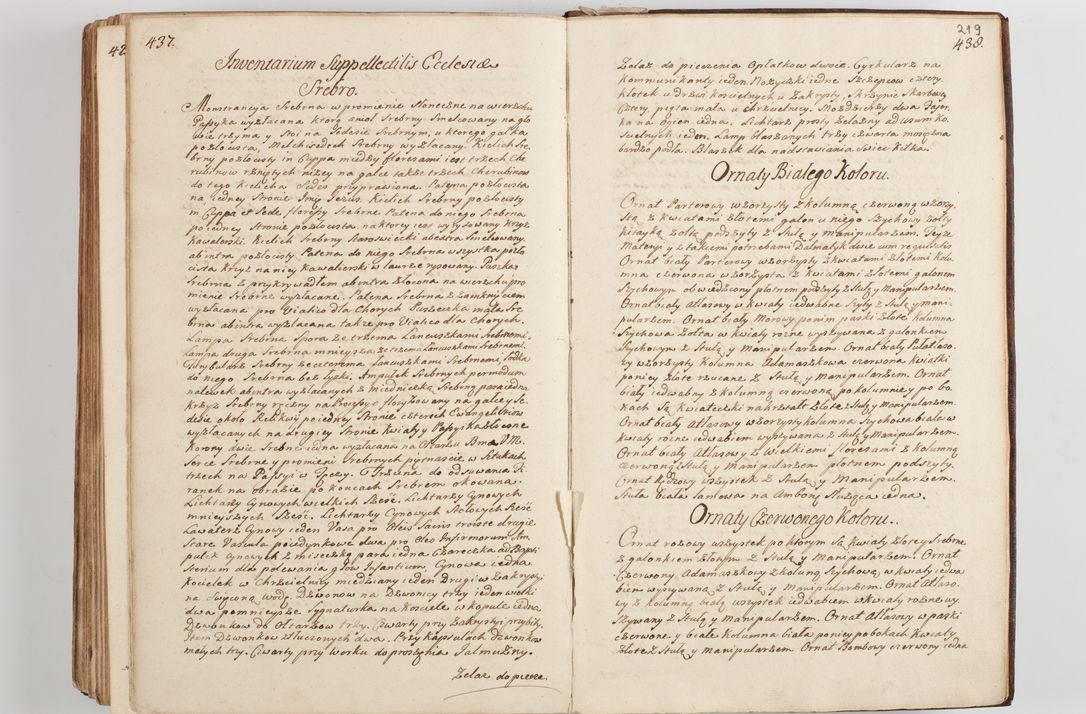 437.
Inventarium Suppellectilis Ecclesiæ
Srebro.
Monstrancya Srebrna w promienie Słoneczne na wierzchu
Passyka wyzłacana ktorą anioł Srebrny Smelcowany na gło
wie trzyma y Stoi na Sedesie Srebrnym, u ktorego gałka
pozłocista, Melchisedech Srebrny wyzłacany. Kielich Sre,
brny pozłocisty in Cuppa miedzy floresami iest trzech Che
rubinow rzniętych niżey na gałce także trzech Cherubinow
do tego Kielicha Sedes przyprawiona. Patyna pozłocista
na iedney Stronie Jmię Jezus. Kielich Srebrny pozłocisty
in Cuppa et Sede, floressy Srebrne Patena do niego Srebrna
po iedney Stronie pozłocista, na ktorey iest wyrysowany Krzyż
Kawalerski. Kielich Srebrny Staroswiecki ab extra Smelcowany,
ab intra pozłocisty Patena do niego Srebrna wszystka pozło
cista Krzyż na niey Kawalierski w laurze rysowany. Puszka
Srebrna z przykrywadłem ab intra złocona na wierzchu pro
mienie Srebrne wyzłacane. Patena Srebrna z zamknięciem
wyzłacane pro Viatico dla Chorych Puszeczka mała Sre,
brna ab intra wyzłacana także pro Viatico dla Chorych.
Lampa Srebrna Spora ze trzema Lancuszkami Srebrnemi,
Lampa druga Srebrna mnieysza ze trzema Lancuszkami Srebrnemi.
Turybularz Srebrny ze czterema Lancuszkami Srebrnemi, Łodka
do niego Srebrna bez łyzki. Ampułek Srebrnych per modum
nalewek ab intra wyzłacanych z miedniczką Srebrną para iedna
Krzyż Srebrny ręczny na Processye floryzowany na gałce y Se
desie około Relikwij po iedney Stronie czterech Ewangelistow
wyzłacanych na drugiey Stronie Kwiaty y Passyika złocone
Korony dwie Srebrne iedna wyzłacana na Ołtarzu Bmæ V. M.
Serce Srebrne y promieni Srebrnych pietnascie w Sztukach
trzech na Passyi w Tęczy. Trzcina do odsuwania Fi
ranek na obrazie po koncach Srebrem okowana.
Lichtarzy Cynowych wielkich Sześć. Lichtarzy Cynowych
mnieyszych Sześć. Lichtarzy Cynowych Stołowych Sześć
Lawaterz Cynowy ieden Vasa pro Oleis Sacris troiste drugie
Stare Vascula poiedynkowe dwa pro Oleo Infirmorum Am
pułek Cynowych z miseczką para iedna Czareczka ad Bapti
sterium dla polewania głow Infantium, Cynowa iedna
Kociełek w Chrzcielnicy miedziany ieden drugi w Zakrystyi
na Swięconą wodę. Dzwonow na Dzwonicy trzy ieden wielki
dwa pomnieysze Sygnaturka na Kosciele w kopule iedna
Dzwonkow do Ołtarzow trzy. Czwarty przy Zakrystyi przybity.
Item Dzwonkow stłuczonych dwa. Przy Kapsułach dzwonkow
małych try. Czwarty przy Worku do proszenia Jałmużny.
Zelaz do piecze.
219
438.
Zelaz do pieczenia Opłatkow dwoie. Cyrkularz na
Kommunikanty ieden. Nożyczki iedne Szczypcow cztery.
Kłotek u drzwi koscielnych u Zakrysty, Skrzynie Skarbowy
cztery piąta mała u chrzcielnicy. Mozdzierzy dwa Fajer
ka na ogien iedna. Lichtarz prosty żelazny ad usum ko,
scielnych ieden. Lamp blaszanych trzy czwarta mosiężna
bardzo podła. Blaszek dla nadstawiania Swiec kilka.
Ornaty Białego Koloru.
Ornat Parterowy wzorzysty z kolumną czerwoną wzorzy,
stą z kwiatami złotemi galon u niego Szychowy żołty
kitayką żołtą podszyty z Stułą y manipularzem. Teyże
Materyi y z takiemi potrzebami Dalmatyk dwie cum requisitis
Ornat biały Parterowy wzorzysty z kwiatami złotemi kolu
mna czerwona wzorzysta z kwiatami złotemi galonem
Szychowym obwiedziony płotnem podszyty z Stułą y Manipularzem.
Ornat biały Atłasowy w kwiaty iedwabne Szyty z Stułą y mani-
pularzem. Ornat biały Morowy po nim paski złote kolumna
Szychowa żołta w kwiaty rożne wyszywana z galonkiem
Szychowym z Stułą y Manipularzem. Ornat biały Tabitoso,
wy wzorzysty Kolumna Adamaszkowa czerwona kwiatki
po niey złote rzucane z Stułą y Manipularzem. Ornat
biały iedwabny z kolumną czerwoną po kolumnie y po bo,
kach Są kwiateczki na kształt złote z Stułą y Manipularzem.
Ornat biały Atłasowy wzorzysty kolumna Szychowa biała w
kwiaty rożne iedwabiem wyszywana z Stułą y Manipularzem.
Ornat biały Atłasowy z wielkiemi floresami z kolumną
czerwoną z Stułą y Manipularzem płotnem podszyty.
Ornat Rządkowy wszystek z Stułą y Manipularzem.
Stuła biała lamowa na Ambonę Służąca iedna.
Ornaty Czerwonego Koloru..
Ornat rożowy wszystek po ktorym Są kwiaty złote y Srebrne
z galonkiem złotym z Stułą y Manipularzem. Ornat
Czerwony Adamaszkowy z kolumną Szychową, w kwiaty iedwa
biem wyszywaną z Stułą y Manipularzem. Ornat Atłaso,
wy z kolumną białą wszystek iedwabiem w kwiaty rożne wy,
szywany z Stułą y Manipularzem. Ornat Atłasowy w paski
czerwone y białe Kolumna biała po niey po bokach kwiaty
złote z Stułą y manipularzem Ornat Bombowy czerwony iedna